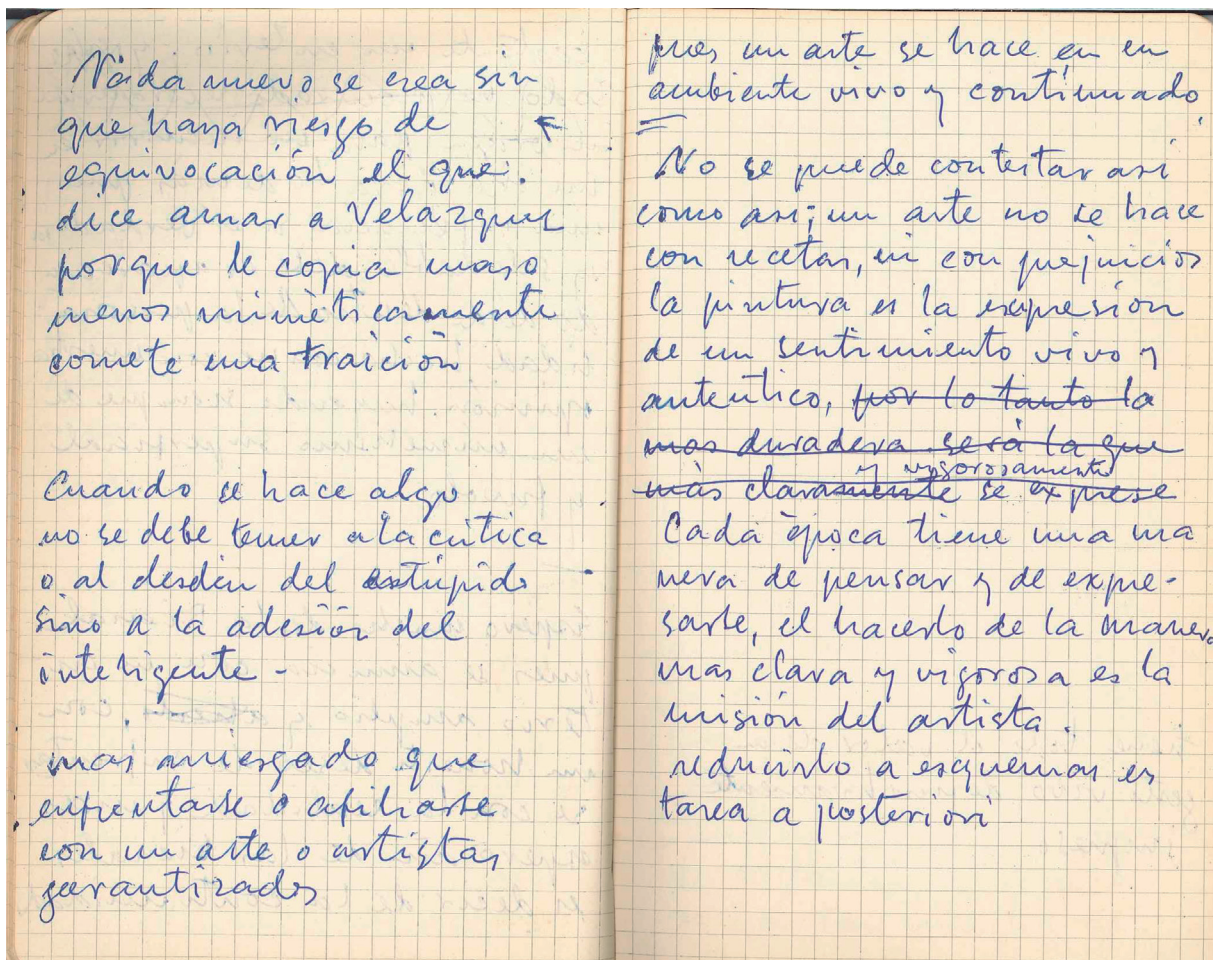 Nada nuevo se crea sin
que haya riesgo de
equivocación el que.
dice amar a Velazquez
porque le copia mas o
menos miméticamente
comete una traición
Cuando se hace algo
no se debe temer a la crítica
o al desdén del estúpido
sino a la adesión del
inteligente -
mas arriesgado que
enfrentarse o afiliarse
con un arte o artistas
garantizados
pues un arte se hace en en
ambiente vivo y continuado.
No se puede contestar asi
como asi; un arte no se hace
con recetas, ni con prejuicios
la pintura es la expresión
de un sentimiento vivo y
autentico, por lo tanto la
mas duradera será la que
y vigorosamente
más claramente se exprese
Cada época tiene una ma
nera de pensar y de expre-
sarse, el hacerlo de la manera
mas clara y vigorosa es la
misión del artista.
reducirlo a esquemas es
tarea a posteriori